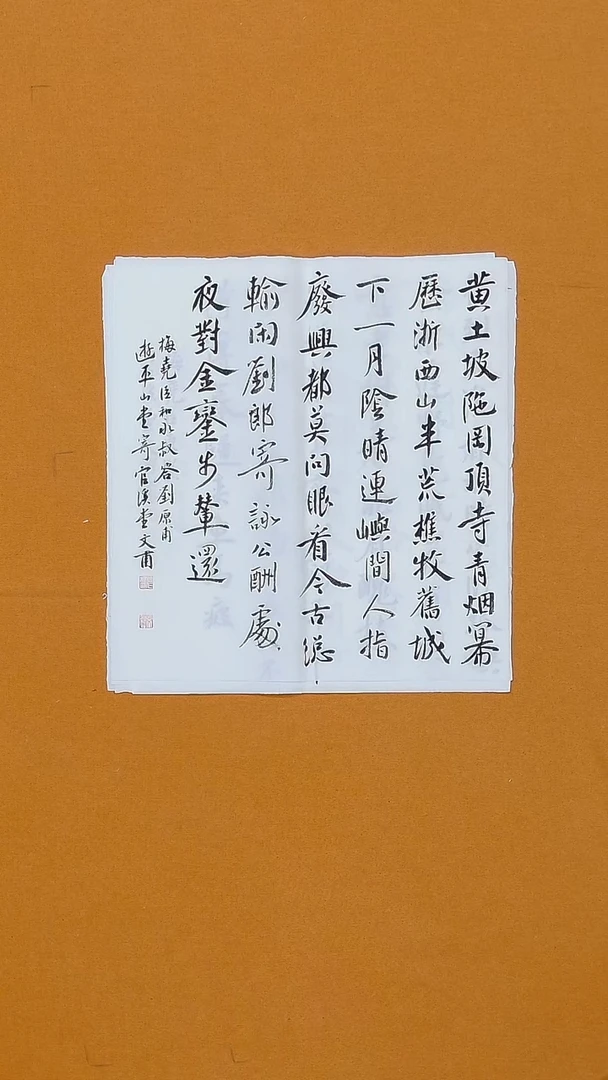 黄土坡陁罡頂寺青烟幂
歷浙西山半荒樵牧舊城
下一月陰晴連嶼間人指
廢興都莫问眼看今古總
輸闲劉郎寄詠公酬處
夜對金鑾步輦還
梅堯臣和永叔答劉原甫
遊平山堂寄官溪堂文甫